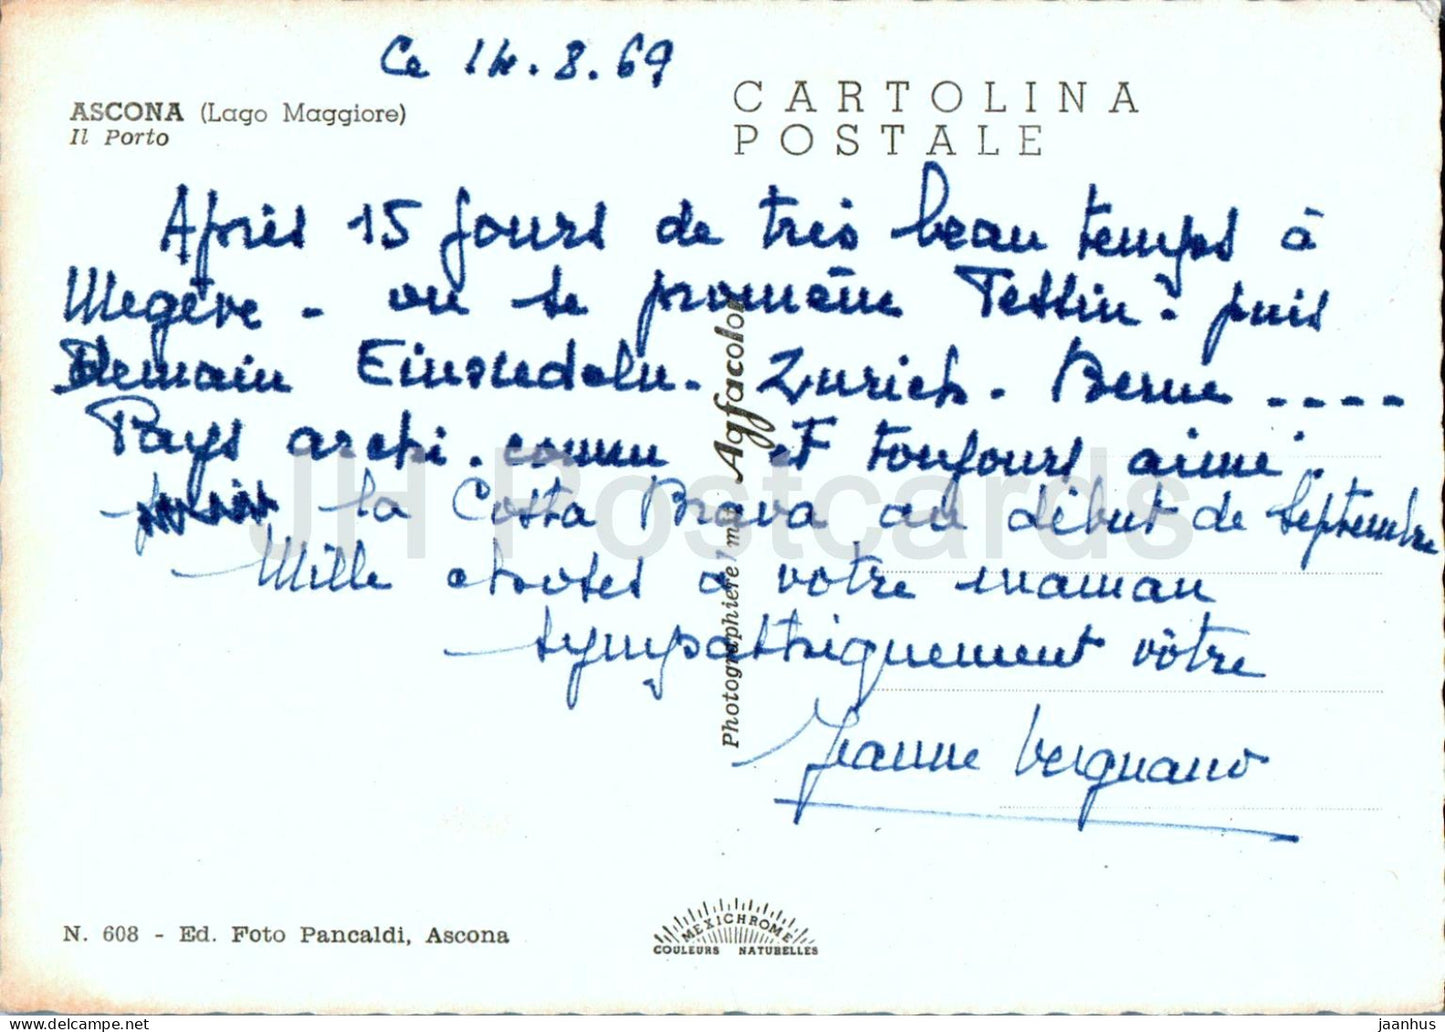 Ce 14.8.69
ASCONA (Lago Maggiore)
Il Porto
CARTOLINA
POSTALE
Après 15 jours de très beau temps à
Megève - on se promène Tessin - puis
Demain Einsiedeln. Zurich. Berne ....
Pays archi.connu et toujours aimé.
la Costa Brava au début de Septembre
Mille choses à votre maman
sympathiquement vôtre
Jeanne Vergnano
Photographiere mit Agfacolor
N. 608 - Ed. Foto Pancaldi, Ascona
MEXICHROME
COULEURS NATURELLES
JH Postcards
delcampe.net
jaanhus